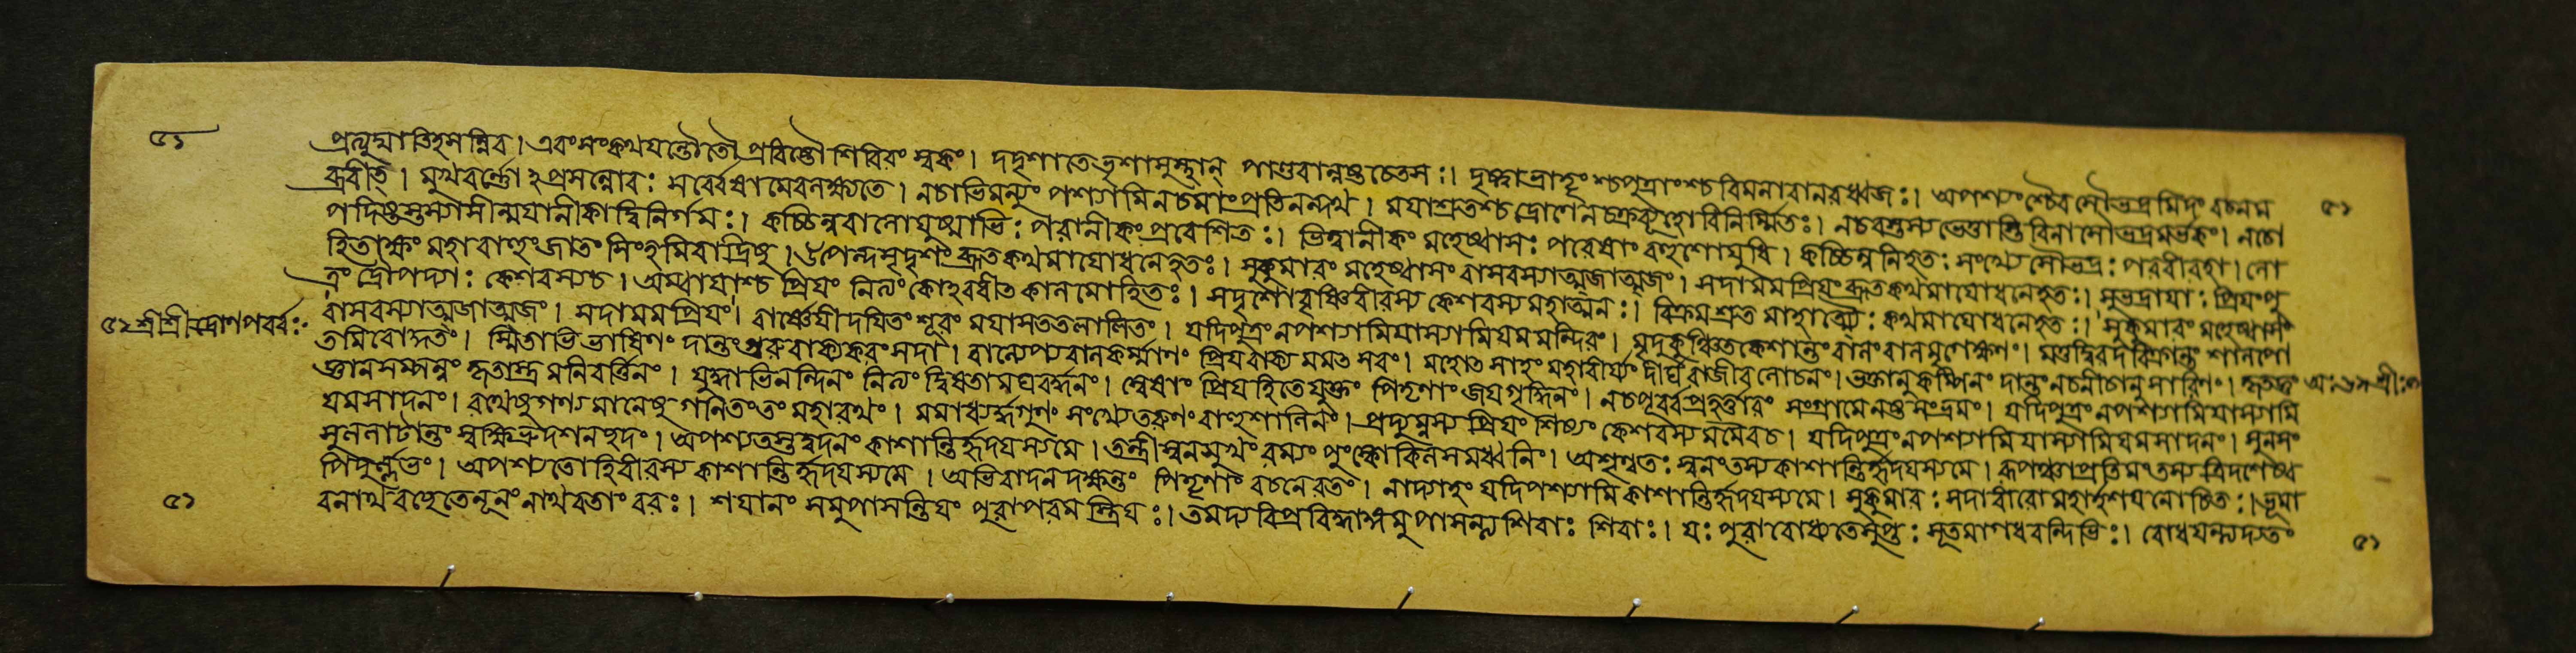 ৫১
প্রত্যুদ্যাতিহসন্নিব। এবংসংকথযন্তৌতৌপ্রবিষ্টৌশিবিরংস্বকং। দদৃশাতেভৃশাসুস্থান্ পাণ্ডবান্নষ্টচেতসঃ। দৃষ্ট্বাভ্রাতৄংশ্চপুত্রাংশ্চবিমনাবানরধ্বজঃ। অপশ্যংশ্চৈবসৌভদ্রমিদং বচনম
ব্রবীৎ। মুখবর্ণোঽপ্রসন্নোবঃ সর্ব্বেষামেবলক্ষ্যতে। নচাভিমন্যুং পশ্যামিনচমাংপ্রতিনন্দথ। মযাশ্রুতশ্চদ্রোণেনচক্রব্যূহোবিনির্ম্মিতঃ। নচবস্তস্যভেত্তাস্তিবিনাসৌভদ্রমর্ভকং। নচো
৫১
পদিষ্টস্তস্যাসীন্মযানীকাদ্বিনির্গমঃ। কচ্চিন্নবালোযুষ্মাভিঃ পরানীকংপ্রবেশিতঃ। ভিত্ত্বানীকং মহেষ্বাসঃ পরেষাং বহুশোযুধি। কচ্চিন্ননিহতঃ সংখ্যেসৌভদ্রঃ পরবীরহা। লো
হিতাক্ষং মহাবাহুংজাতং সিংহমিবাদ্রিষু। উপেন্দ্রসদৃশং ব্রূতকথমাযোধনেহতঃ। সুকুমারং মহেষ্বাসং বাসবস্যাত্মজাত্মজং। সদামমপ্রিযংব্রূতকথমাযোধনেহতঃ। সুভদ্রাযাঃ প্রিযংপু
ত্রং দ্রৌপদ্যাঃ কেশবস্যচ। অম্বাযাশ্চ প্রিযং নিত্যংকোঽবধীৎকালমোহিতঃ। সদৃশোবৃষ্ণিবীরস্য কেশবস্যমহাত্মনঃ। বিক্রমশ্রুত মাহাত্ম্যৈঃ কথমাযোধনেহতঃ। সুকুমারং মহেষ্বাসং
বাসবস্যাত্মজাত্মজং। সদামমপ্রিযং। বার্ষ্ণেযীদযিতং শূরং মযাসততলালিতং। যদিপুত্রং নপশ্যামিযাস্যামিযমমন্দিরং। মৃদুকুঞ্চিতকেশান্তংবালংবালমৃগেক্ষণং। মত্তদ্বিরদবিক্রান্তং শালপো
৫১শ্রীশ্রীদ্রোণপর্ব্বঃ
তমিবোদ্গতং। স্মিতাভি ভাষিণং দান্তংগুরুবাক্যকরংসদা। বাল্যেপ্যবালকর্ম্মাণং প্রিযবাক্য মমৎসরং। মহোৎসাহং মহাবীর্য্যং দীর্ঘরাজীবলোচনং। ভক্তানুকম্পিনং দান্তং নচনীচানুসারিণং। কৃতজ্ঞং
জ্ঞানসম্পন্নং কৃতাস্ত্রমনিবর্ত্তিনং। যুদ্ধাভিনন্দিনং নিত্যং দ্বিষতামঘবর্দ্ধনং। স্বেষাং প্রিযহিতেযুক্তং পিতৄণাং জযগৃদ্ধিনং। নচপূর্ব্বপ্রহর্ত্তারং সংগ্রামেনষ্টসংভ্রমং। যদিপুত্রংনপশ্যামিযাস্যামি
যমসাদনং। রথেষুগণ্যমানেষুগণিতংতং মহারথং। মমাধ্যর্দ্ধগুণং সংখ্যেতরুণং বাহুশালিনং। প্রদ্যুম্নস্য প্রিযং শিষ্যং কেশবস্য মমৈবচ। যদিপুত্রংনপশ্যামিযাস্যামিযমসাদনং। সুনসং
সুললাটান্তং স্বক্ষিভ্রূদশনচ্ছদং। অপশ্যতস্তদ্বদনং কাশান্তির্হৃদযস্যমে। তন্ত্রীস্বনসুখং রম্যং পুংস্কোকিলসমধ্বনিং। অশৃণ্বতঃ স্বনংতস্যকাশান্তির্হৃদযস্যমে। রূপঞ্চাপ্রতিমংতস্য ত্রিদশেষ্ব
পিদুর্ল্লভং। অপশ্যতোহিবীরস্য কাশান্তির্হৃদযস্যমে। অভিবাদনদক্ষন্তং পিতৄণাং বচনেরতং। নাদ্যাহং যদিপশ্যামি কাশান্তির্হৃদযস্যমে। সুকুমারঃ সদাবীরোমহার্হশযনোচিতঃ। ভূমা
৫১
বনাথবচ্ছেতেনূনং নাথবতাং বরঃ। শযানং সমুপাসন্তিযং পুরাপরমস্ত্রিযঃ। তমদ্যবিপ্রবিদ্ধাঙ্গমুপাসন্ত্যশিবাঃ শিবাঃ। যঃ পুরাবোধ্যতেসুপ্তঃ সূতমাগধবন্দিভিঃ। বোধযন্ত্যদ্যতং
৫১